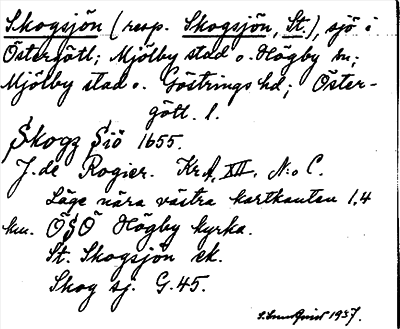 Skogsjön (resp. Skogsjön, St.), sjö i
Östergötl; Mjölby stad o. Högby sn;
Mjölby stad o. Göstrings hd; Öster-
götl. l.
Skogz Siö 1655.
J. de Rogier. KrA, XII, N:o C.
Läge nära västra kartkanten 1,4
km. ÖSÖ Högby kyrka.
St. Skogsjön ek.
Skog sj. G.45.
1937.